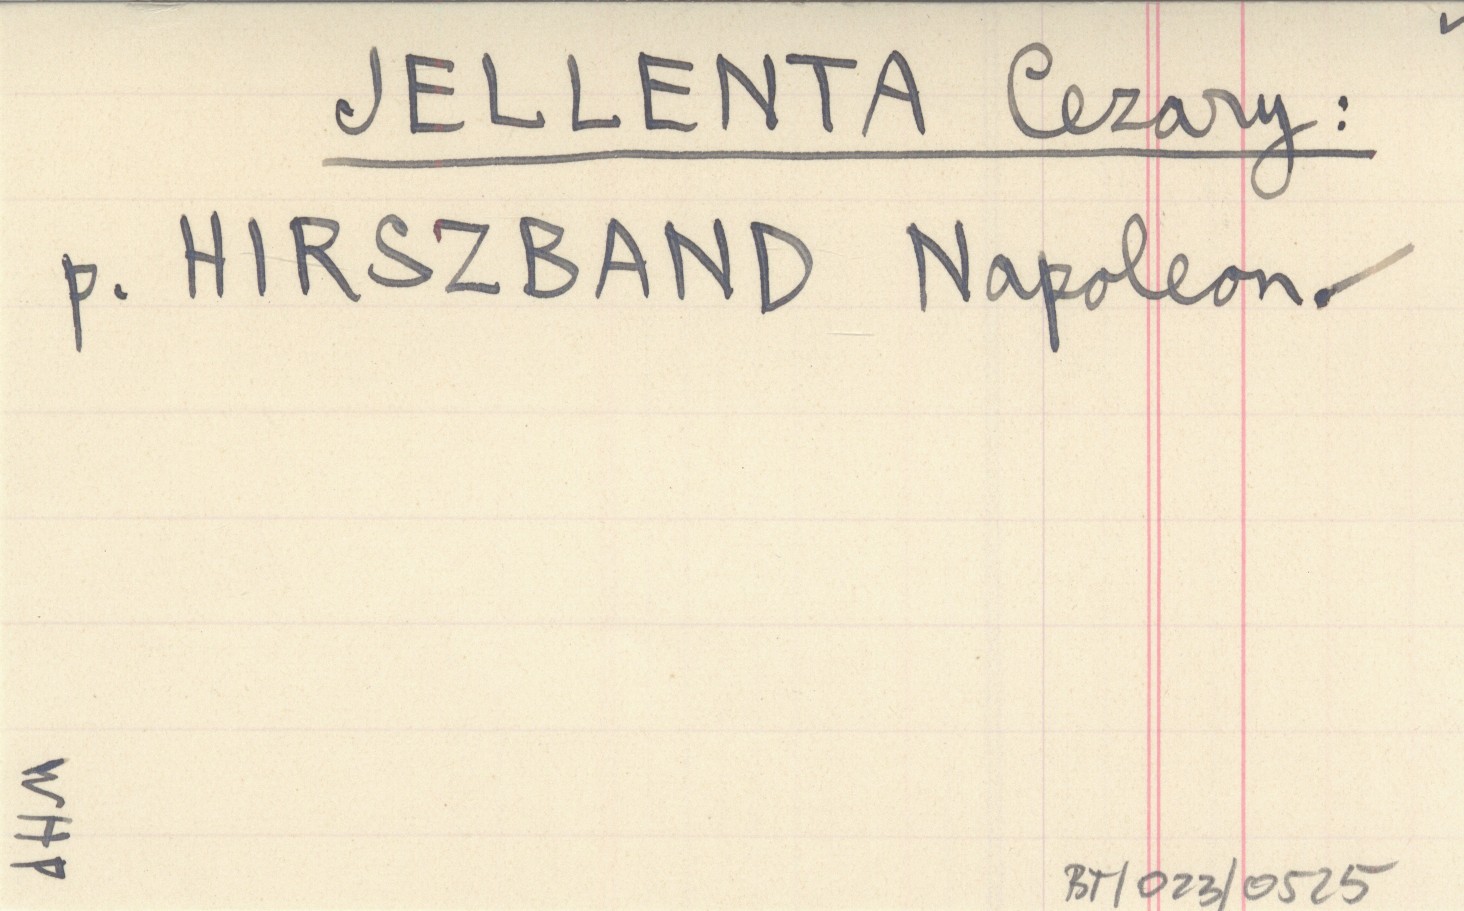 JELLENTA Cezary:
p. HIRSZBAND Napoleon.
WHP
BT/023/0525